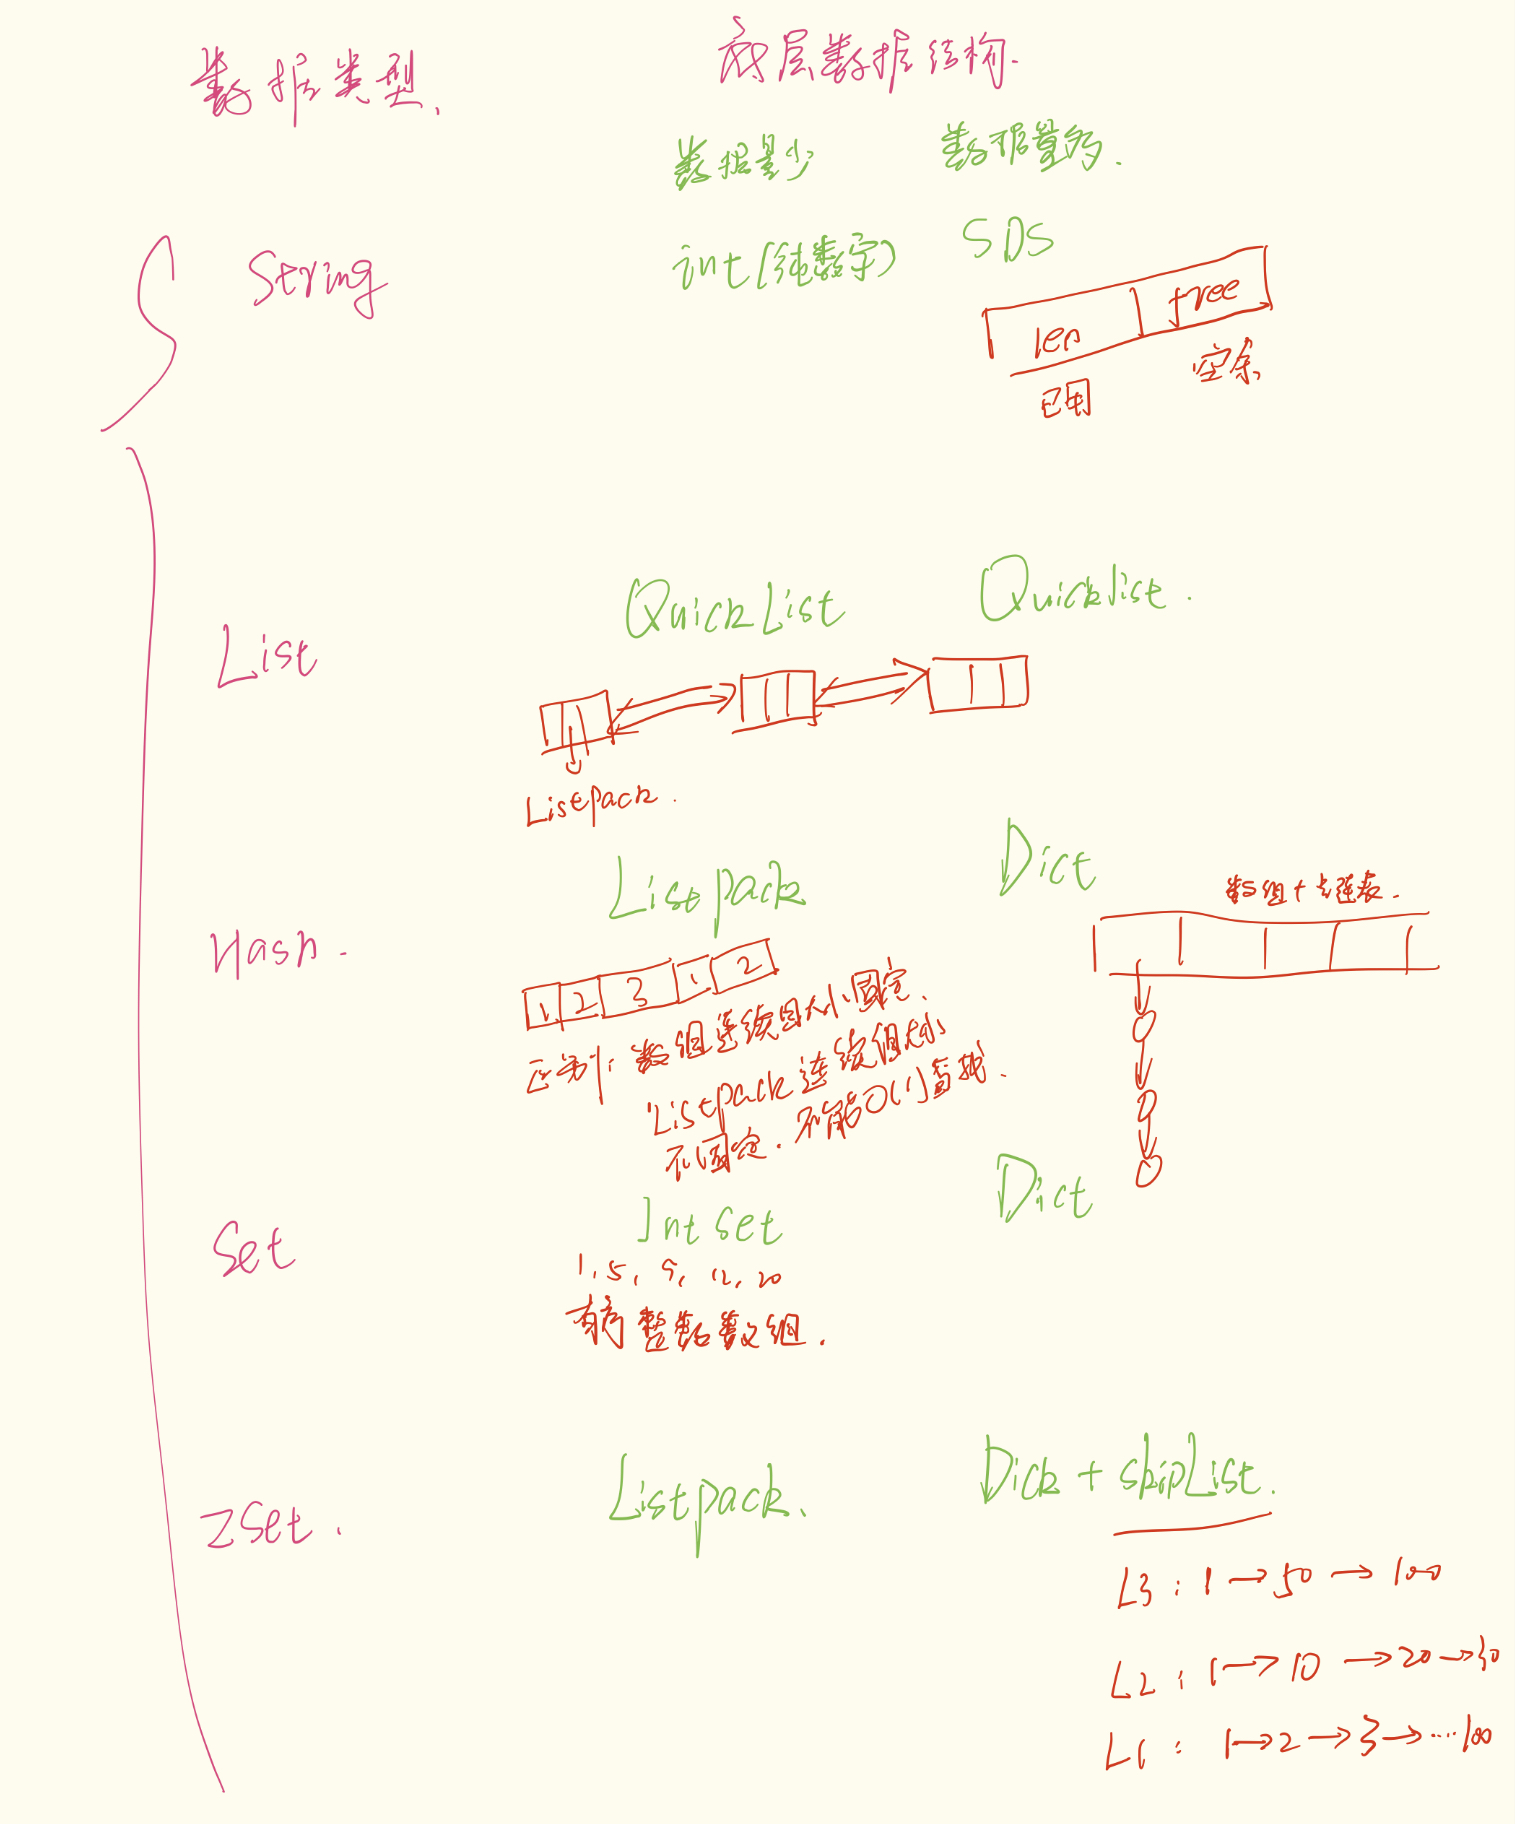 数据类型.
底层数据结构.
数据量少
数据量多.
String
int(纯数字)
SDS
len
free
已用
空余
List
QuickList
Quicklist.
Listpack.
Hash.
Listpack
Dict
数组+ 链表.
1 2 3 1 2
区别: 数组连续且大小固定.
Listpack 连续但大小
不固定. 不能O(1)查找.
Set
Intset
Dict
1, 5, 9, 12, 20
有序整数数组.
ZSet.
Listpack.
Dick + skipList.
L3: 1→50→100
L2: 1→10→20→50
L1: 1→2→3→...100